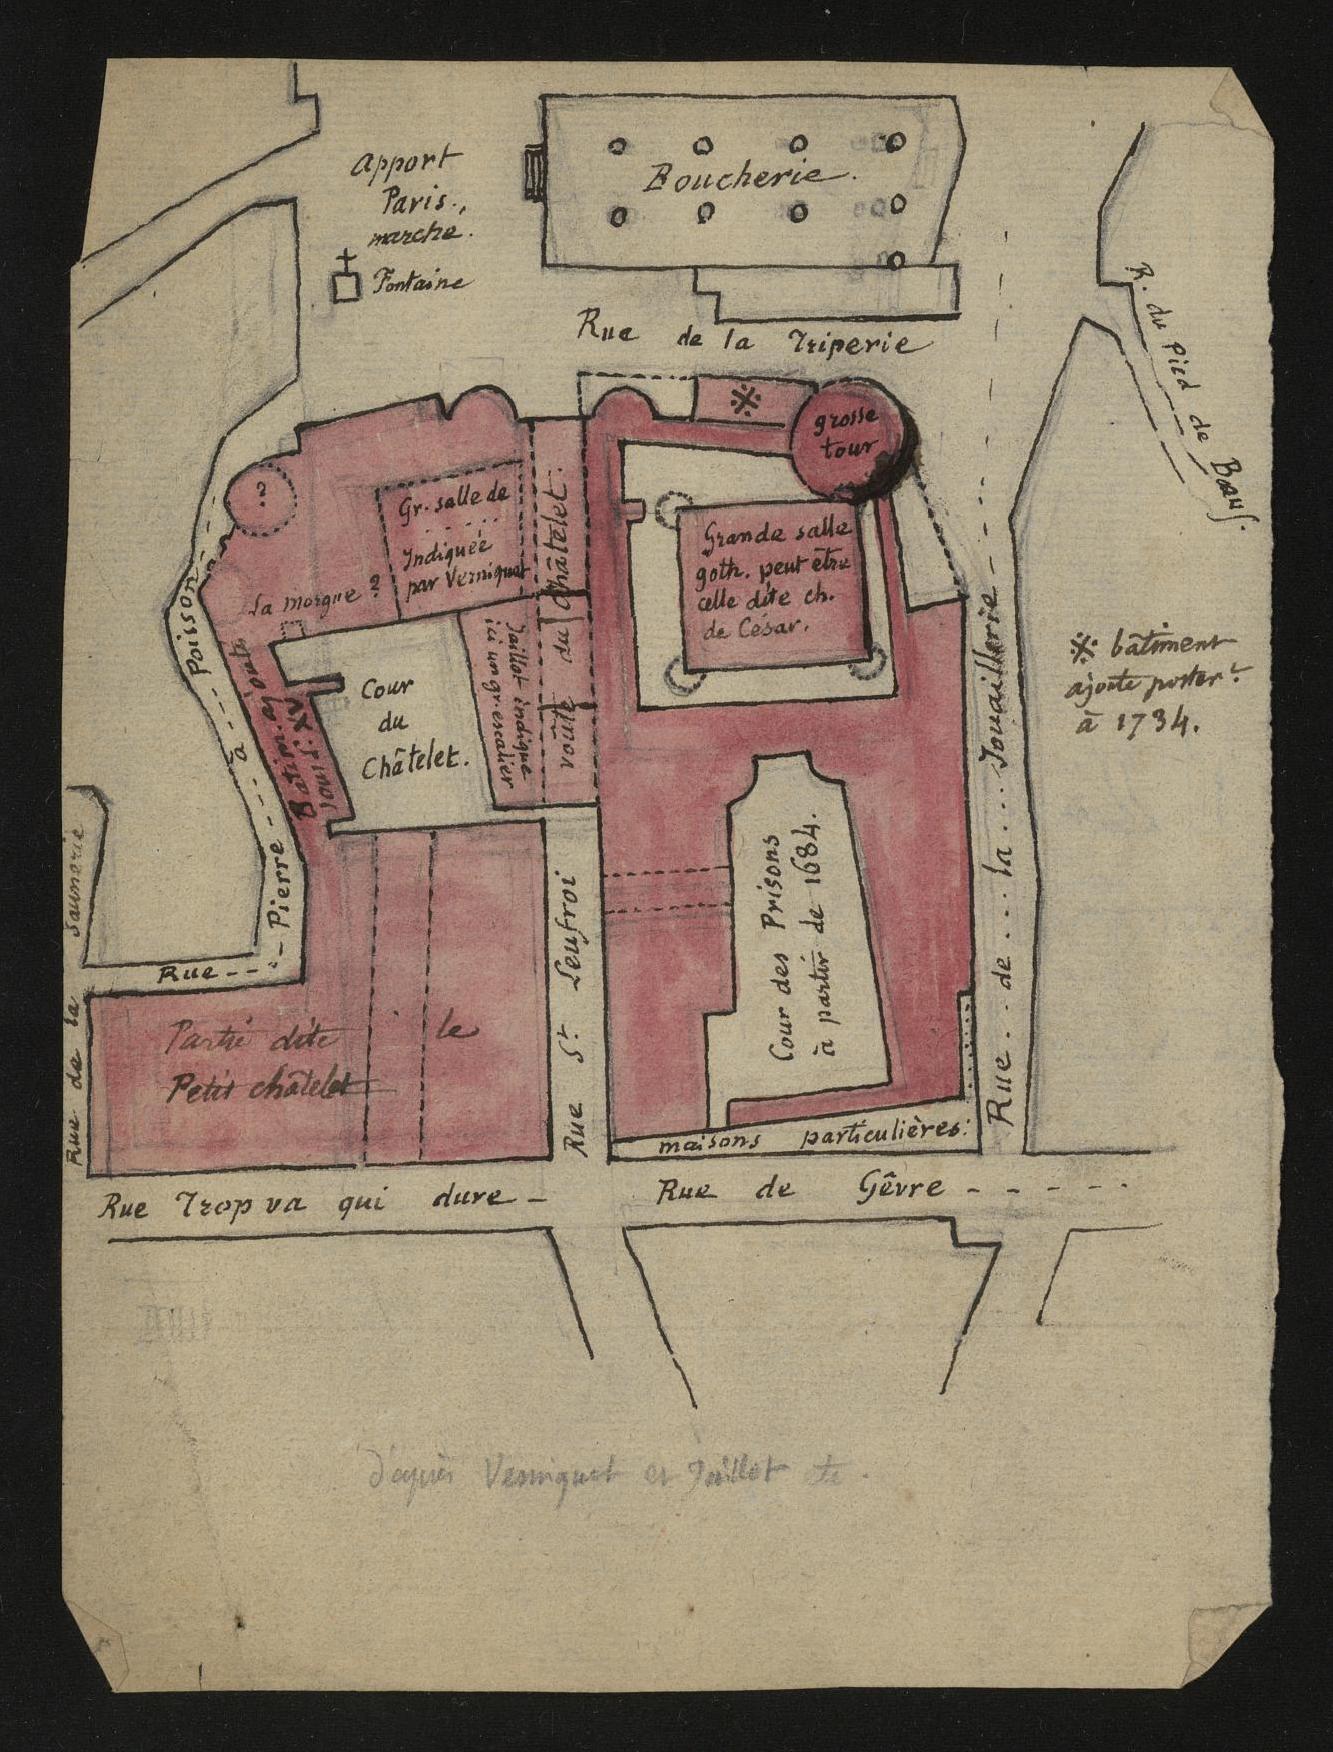 apport
Paris.,
marche.
Fontaine
Boucherie.
Rue de la Triperie
R. du Pied de Bœuf.
grosse
tour
※
?
Gr. salle de
Indiquée
par Verniquet
La morgue ?
voûte du Châtelet.
Grande salle
goth. peut être
celle dite ch.
de César.
Jaillot indique
ici un gr. escalier
Cour
du
Châtelet.
Batim. ajouté
Louis XV
※ bâtiment
ajouté poster.t
à 1734.
Rue - - - Pierre - - - à - - - Poisson
Rue de la Saunerie
Rue St Leufroi
Cour des Prisons
à partir de 1684.
Rue . . de . . . la . . . Jouaillerie
Partie dite le
Petit châtelet
maisons particulières.
Rue Trop va qui dure -
Rue de Gêvre - - - - -
d'après Verniquet et Jaillot etc.